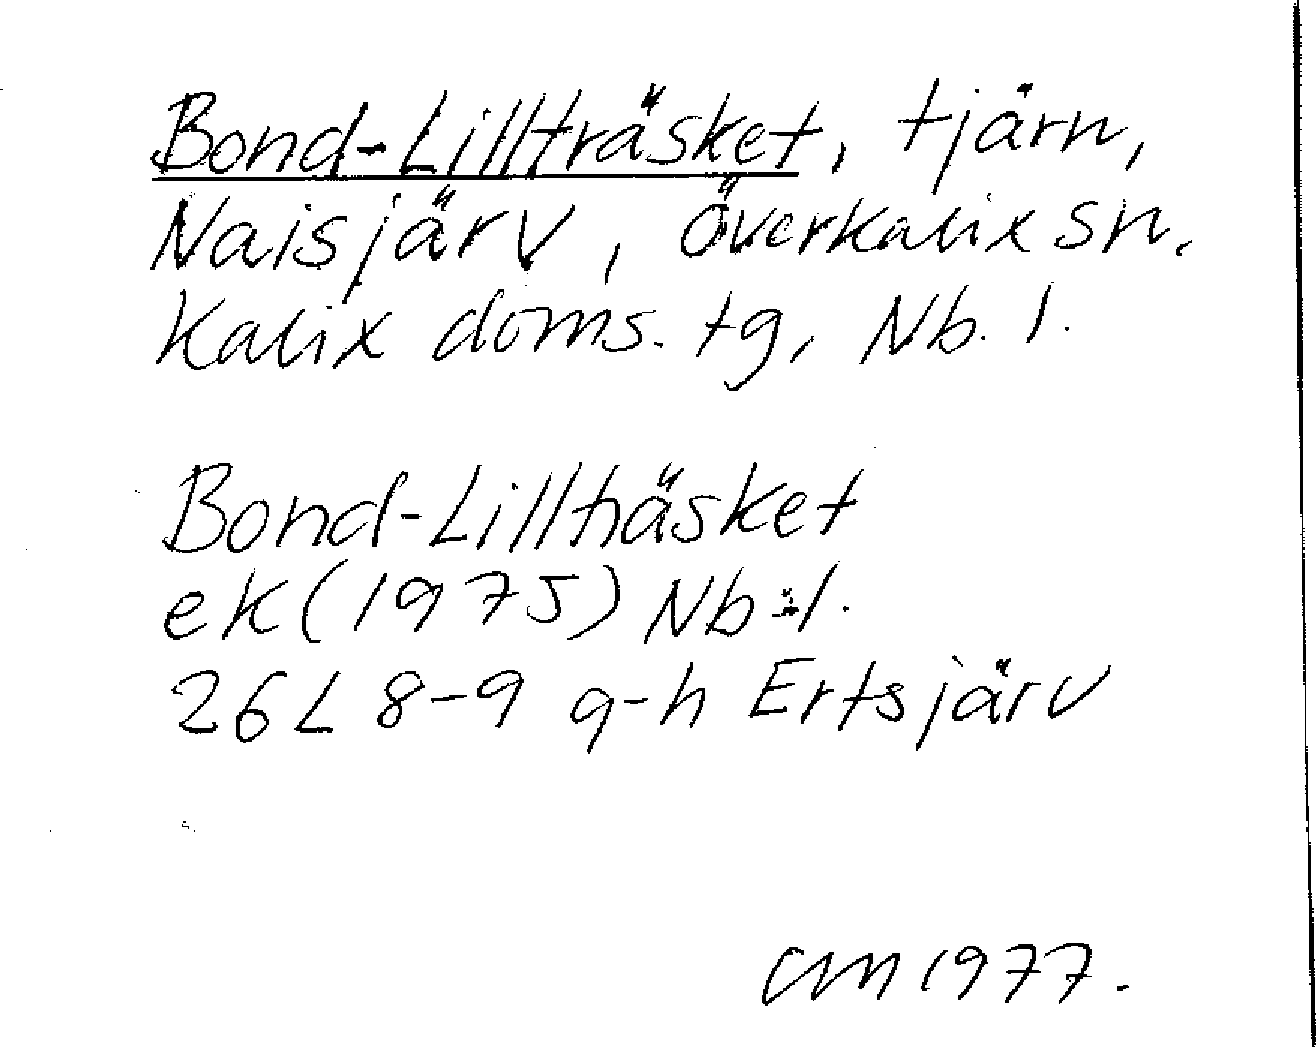 Bond-Lillträsket, tjärn,
Naisjärv, Överkalix sn.
Kalix doms. tg, Nb. l.
Bond-Lillträsket
ek (1975) Nb:l.
26L 8-9 g-h Ertsjärv
CM 1977.